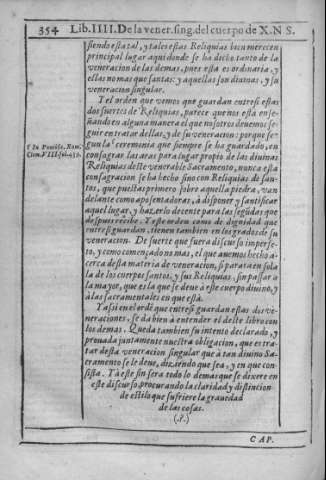 354 Lib. IIII. De la vener. sing. del cuerpo de X. N S.
siendo esta tal, y tales estas Reliquias bien merecen
principal lugar aqui donde se ha dicho tanto de la
veneracion de las demas, pues esta es ordinaria, y
ellas no mas que santas: y aquellas son diuinas, y su
veneracion singular.
Y el orden que vemos que guardan entre si estas
dos suertes de Reliquias, parece que nos està ense-
ñando en alguna manera el que nosotros deuemos se-
guir en tratar dellas, y de su veneracion: porque se-
f In Pontific. Rom. gun la f ceremonia que siempre se ha guardado, en
Clem. VIII. fol. 452. consagrar las aras para lugar propio de las diuinas
Reliquias deste venerable Sacramento, nunca esta
consagracion se ha hecho sino con Reliquias de san-
tos, que puestas primero sobre aquella piedra, van
delante como aposentadoras, à disponer y santificar
aquel lugar, y hazerlo decente para las segũdas que
despues recibe. Y este orden como de dignidad que
entre si guardan, tienen tambien en los grados de su
veneracion. De suerte que fuera discurso imperfe-
to, y como començado no mas, el que auemos hecho a-
cerca desta materia de veneracion, si parara en so-
la de los cuerpos santos, y sus Reliquias, sin passar à
la mayor, que es la que se deue à este cuerpo diuino, y
à las sacramentales en que està.
Y assi en el ordẽ que entre si guardan estas dos ve-
neraciones, se da bien à entender el deste libro con
los demas. Queda tambien su intento declarado, y
prouada juntamente nuestra obligacion, que es tra-
tar desta veneracion singular que à tan diuino Sa-
cramento se le deue, diziendo que sea, y en que con-
sista. Y à este fin sera todo lo demas que se dixere en
este discurso, procurando la claridad y distincion
de estilo que sufriere la grauedad
de las cosas.
(.?.)
CAP.